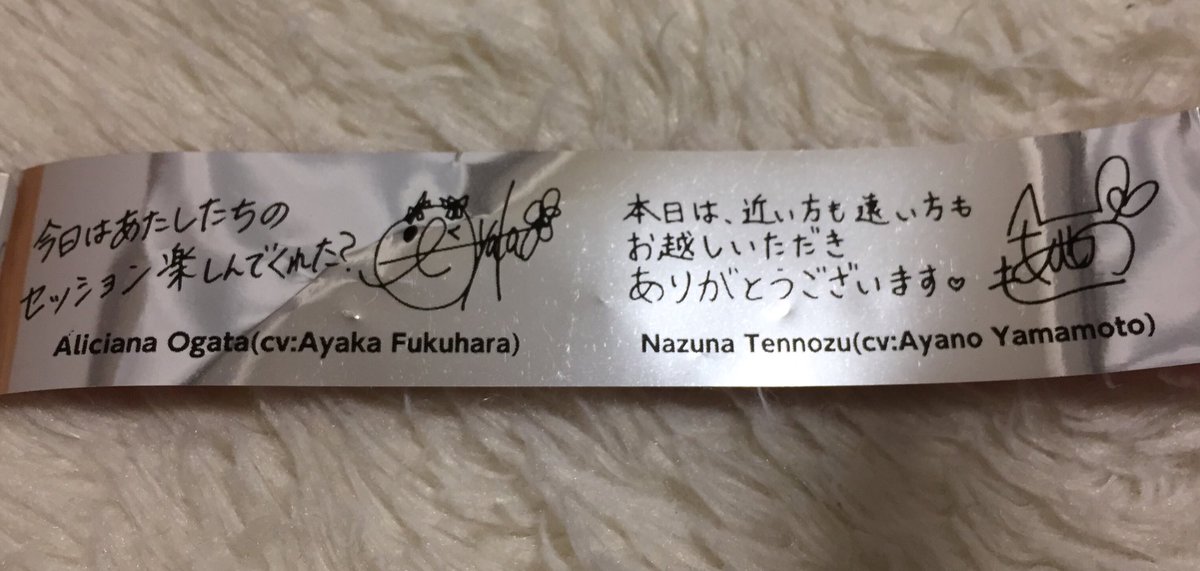 今日はあたしたちの
セッション楽しんでくれた?
Aliciana Ogata(cv:Ayaka Fukuhara)
本日は、近い方も遠い方も
お越しいただき
ありがとうございます♡
Nazuna Tennozu(cv:Ayano Yamamoto)